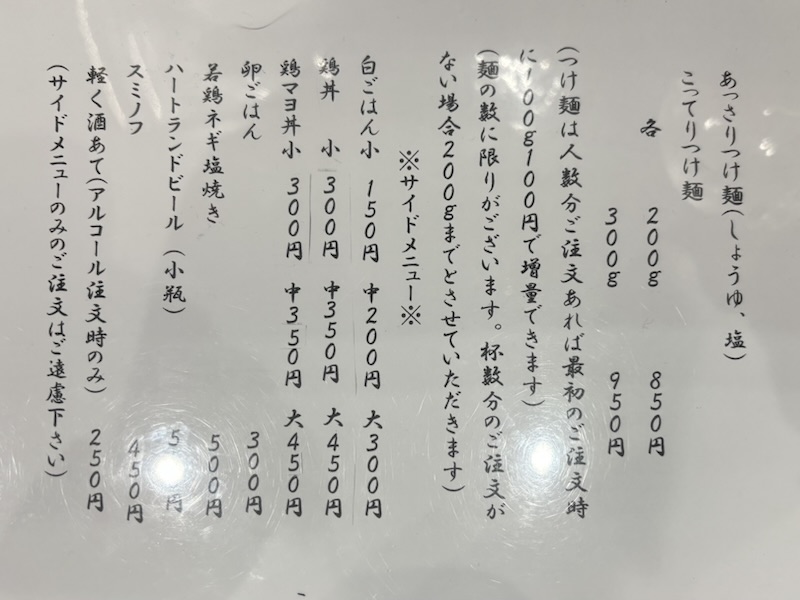 あっさりつけ麺(しょうゆ、塩)
こってりつけ麺
各 200g 850円
300g 950円
(つけ麺は人数分ご注文あれば最初のご注文時
に100g100円で増量できます)
(麺の数に限りがございます。杯数分のご注文が
ない場合200gまでとさせていただきます)
※サイドメニュー※
白ごはん小 150円 中200円 大300円
鶏丼 小 300円 中350円 大450円
鶏マヨ丼小 300円 中350円 大450円
卵ごはん 300円
若鶏ネギ塩焼き 500円
ハートランドビール (小瓶) 5 円
スミノフ 450円
軽く酒あて(アルコール注文時のみ) 250円
(サイドメニューのみのご注文はご遠慮下さい)